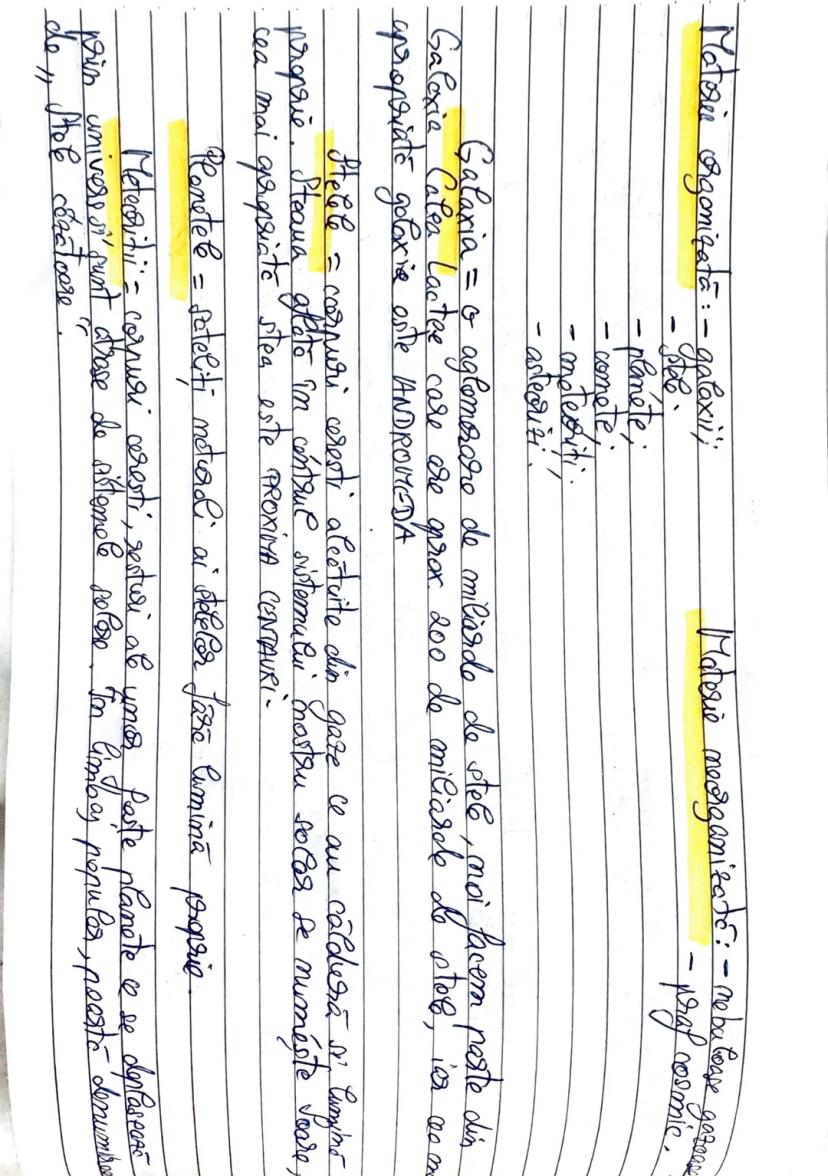 Materie organizată: - galaxii; Materie neorganizată: - nebuloase gazoase
- stele; - praf cosmic.
- planete;
- comete;
- meteoriți;
- asteoriți.
Galaxia = o aglomerare de miliarde de stele, noi facem parte din
Galaxia Calea Lactee care are aprox. 200 de miliarde de stele, iar cea m
apropiată galaxie este ANDROMEDA
Stelele = corpuri cerești alcătuite din gaze ce au căldură și lumină
proprie. Steaua aflată în centrul sistemului nostru solar se numește Soare,
cea mai apropiată stea este PROXIMA CENTAURI.
Planetele = sateliți naturali ai stelelor fără lumină proprie.
Meteoriții = corpuri cerești, resturi ale unor foste planete ce se deplasează
prin univers și sunt atrase de sistemele solare. În limbaj popular, poartă denumirea
de „stele căzătoare".